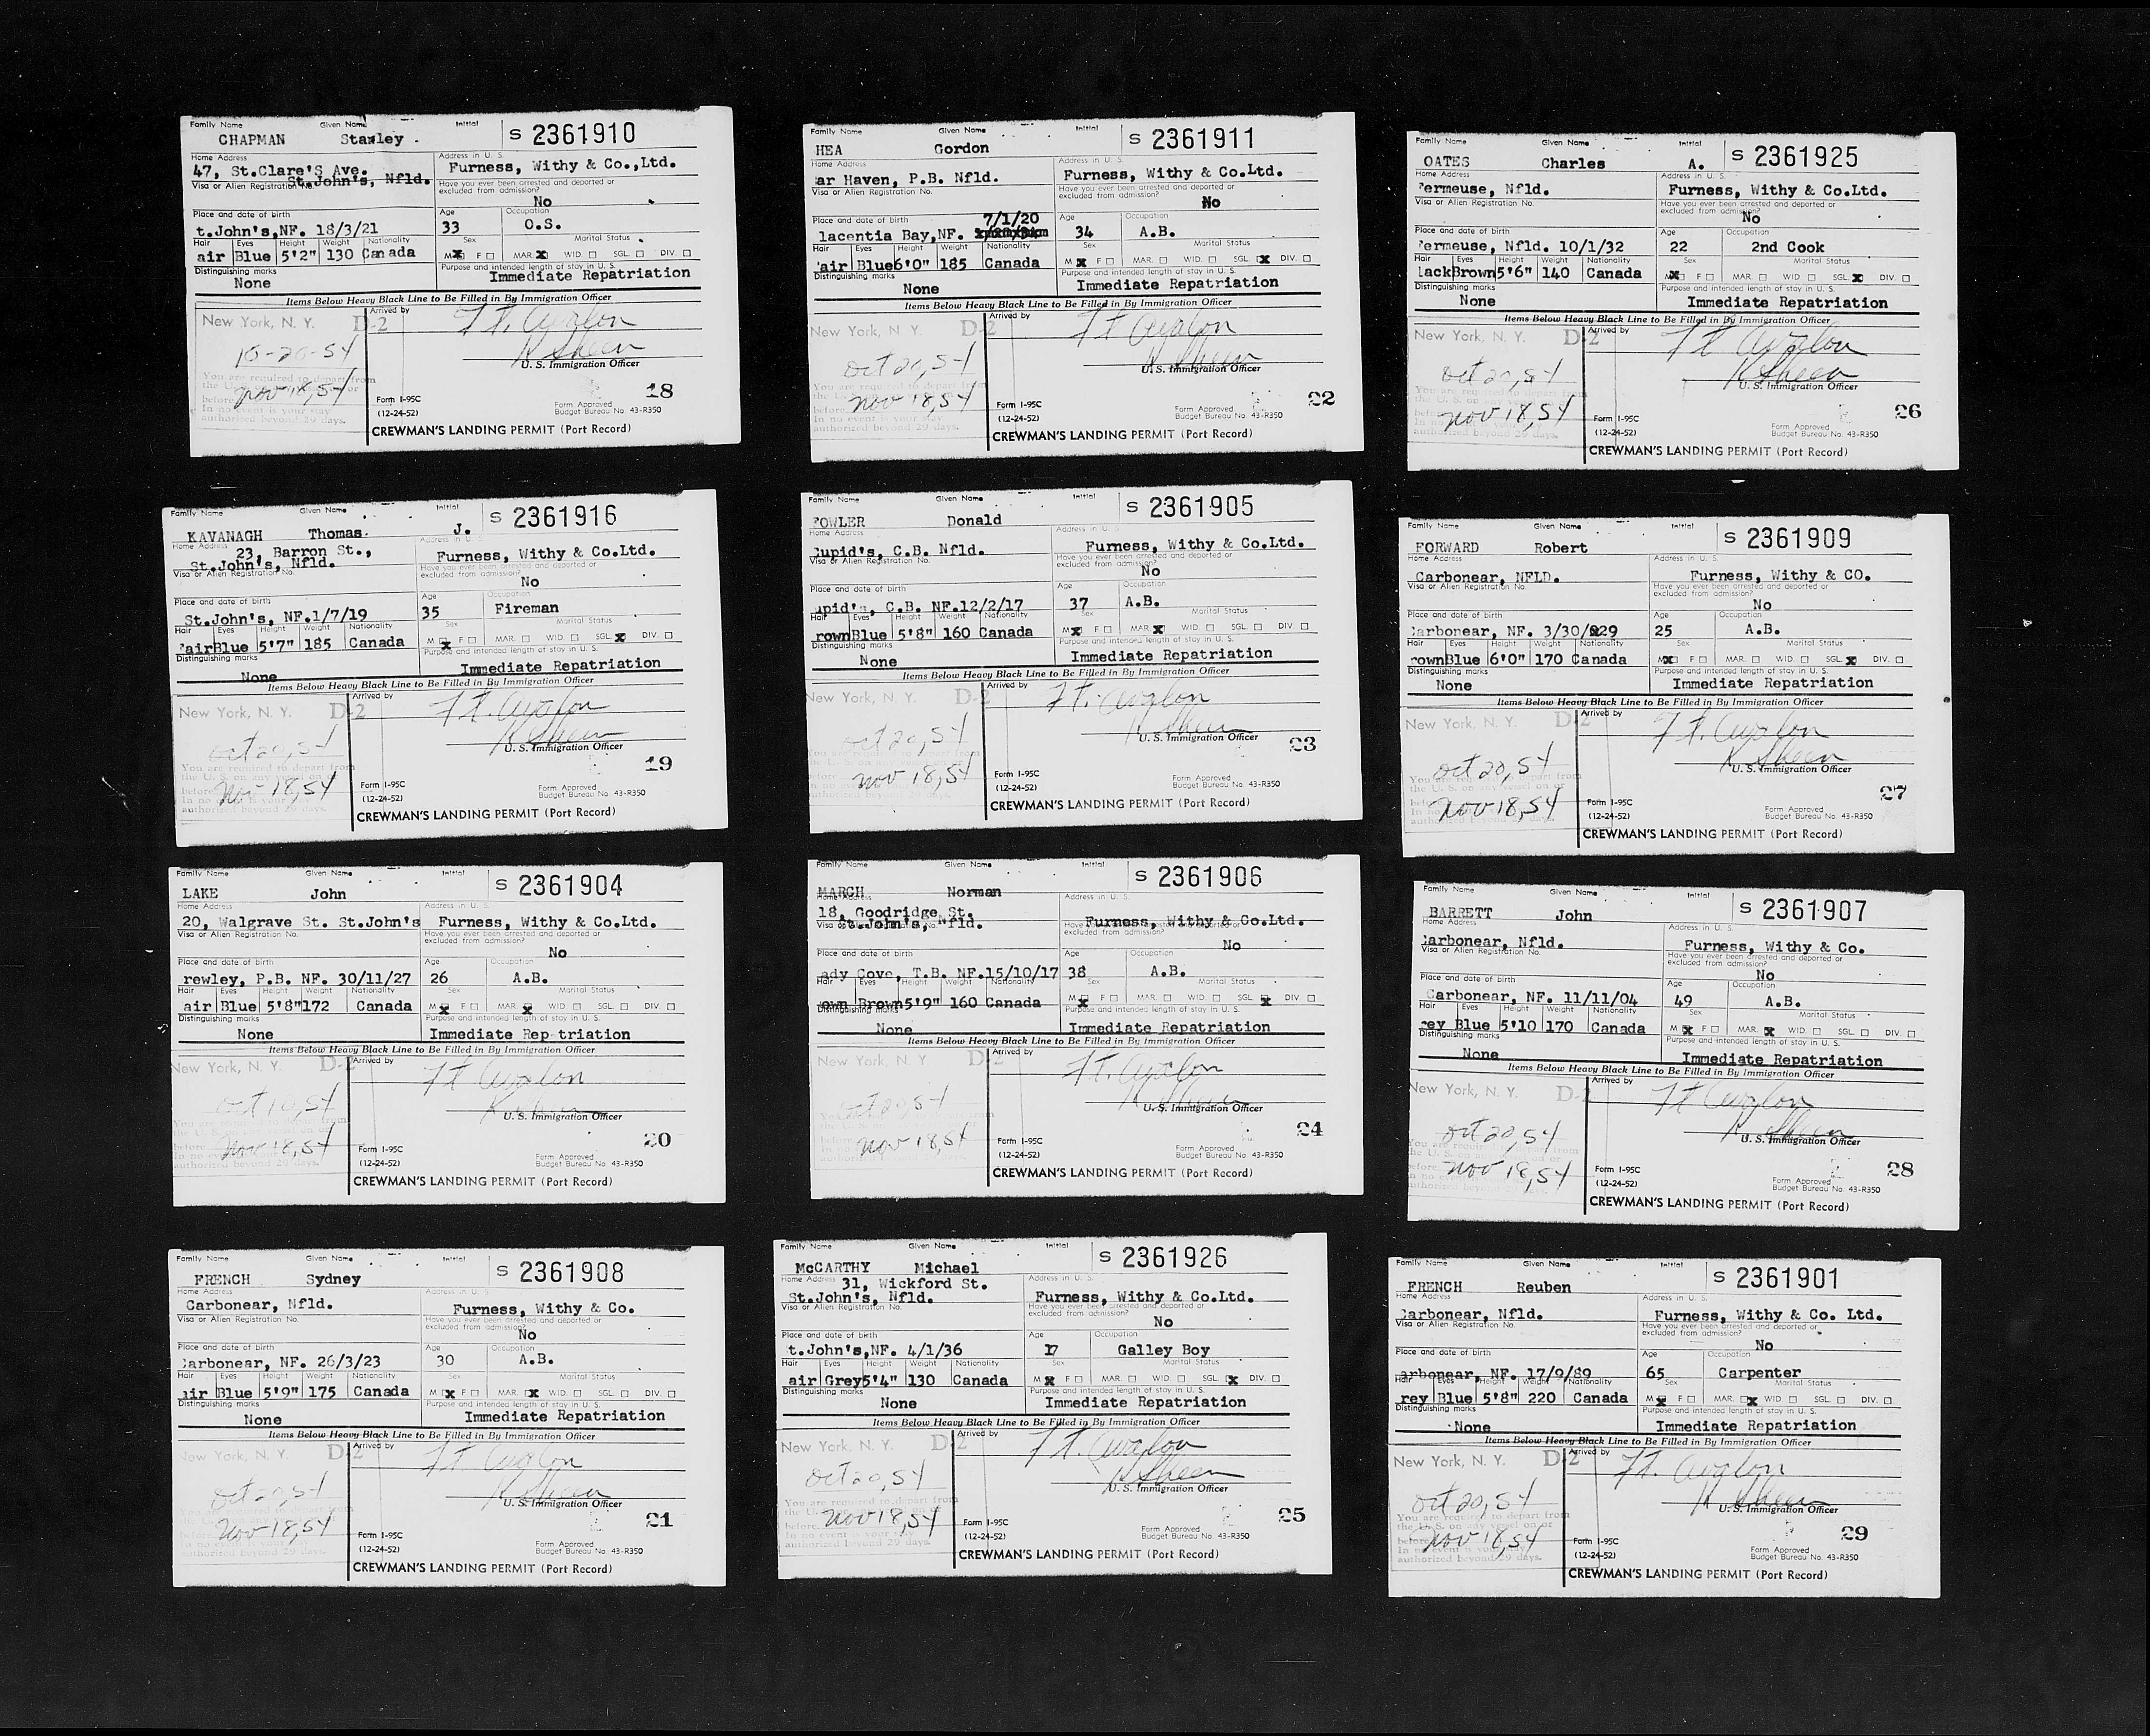 Family Name Given Name Initial S 2361910
CHAPMAN Stanley
Home Address Address in U. S.
47, St.Clare'S Ave. Furness, Withy & Co.,Ltd.
St.John's, Nfld.
Visa or Alien Registration No. Have you ever been arrested and deported or excluded from admission?
No
Place and date of birth Age Occupation
t.John's,NF. 18/3/21 33 O.S.
Hair Eyes Height Weight Nationality Sex Marital Status
air Blue 5'2" 130 Canada M X F MAR. X WID. SGL. DIV.
Distinguishing marks Purpose and intended length of stay in U. S.
None Immediate Repatriation
Items Below Heavy Black Line to Be Filled in By Immigration Officer
New York, N. Y. D-2 Arrived by Ft. Avalon
10-20-54 R Sheen
U. S. Immigration Officer
You are required to depart from
nov 18,54
In no event is your stay
authorized beyond 29 days.
18
Form I-95C
(12-24-52)
Form Approved
Budget Bureau No. 43-R350
CREWMAN'S LANDING PERMIT (Port Record)
Family Name Given Name Initial S 2361916
KAVANAGH Thomas. J.
Home Address Address in U. S.
23, Barron St., Furness, Withy & Co.Ltd.
St.John's, Nfld.
Visa or Alien Registration No. Have you ever been arrested and deported or excluded from admission?
No
Place and date of birth Age Occupation
St.John's, NF.1/7/19 35 Fireman
Hair Eyes Height Weight Nationality Sex Marital Status
air Blue 5'7" 185 Canada M X F MAR. WID. SGL. X DIV.
Distinguishing marks Purpose and intended length of stay in U. S.
None Immediate Repatriation
Items Below Heavy Black Line to Be Filled in By Immigration Officer
New York, N. Y. D-2 Arrived by Ft. Avalon
oct 20,54 R Sheen
U. S. Immigration Officer
You are required to depart from
the U. S. on any vessel on or
before nov 18,54
authorized beyond 29 days.
19
Form I-95C
(12-24-52)
Form Approved
Budget Bureau No. 43-R350
CREWMAN'S LANDING PERMIT (Port Record)
Family Name Given Name Initial S 2361904
LAKE John
Home Address Address in U. S.
20, Walgrave St. St.John's Furness, Withy & Co.Ltd.
Visa or Alien Registration No. Have you ever been arrested and deported or excluded from admission?
No
Place and date of birth Age Occupation
rewley, P.B. NF. 30/11/27 26 A.B.
Hair Eyes Height Weight Nationality Sex Marital Status
air Blue 5'8" 172 Canada M X F MAR. X WID SGL. DIV.
Distinguishing marks Purpose and intended length of stay in U. S.
None Immediate Rep triation
Items Below Heavy Black Line to Be Filled in By Immigration Officer
New York, N. Y. D-2 Arrived by Ft Avalon
U. S. Immigration Officer
before nov 18,54
authorized beyond 29 days.
20
Form I-95C
(12-24-52)
Form Approved
Budget Bureau No. 43-R350
CREWMAN'S LANDING PERMIT (Port Record)
Family Name Given Name Initial S 2361908
FRENCH Sydney
Home Address Address in U. S.
Carbonear, Nfld. Furness, Withy & Co.
Visa or Alien Registration No. Have you ever been arrested and deported or excluded from admission?
No
Place and date of birth Age Occupation
arbonear, NF. 26/3/23 30 A.B.
Hair Eyes Height Weight Nationality Sex Marital Status
air Blue 5'9" 175 Canada M X F MAR. X WID. SGL. DIV.
Distinguishing marks Purpose and intended length of stay in U. S.
None Immediate Repatriation
Items Below Heavy Black Line to Be Filled in By Immigration Officer
New York, N. Y. D-2 Arrived by Ft Avalon
oct 20,54 R Sheen
U. S. Immigration Officer
nov 18,54
authorized beyond 29 days.
21
Form I-95C
(12-24-52)
Form Approved
Budget Bureau No. 43-R350
CREWMAN'S LANDING PERMIT (Port Record)
Family Name Given Name Initial S 2361911
HEA Gordon
Home Address Address in U. S.
ar Haven, P.B. Nfld. Furness, Withy & Co.Ltd.
Visa or Alien Registration No. Have you ever been arrested and deported or excluded from admission?
No
Place and date of birth 7/1/20 Age Occupation
lacentia Bay,NF. 34 A.B.
Hair Eyes Height Weight Nationality Sex Marital Status
air Blue 6'0" 185 Canada M X F MAR. WID. SGL. X DIV.
Distinguishing marks Purpose and intended length of stay in U. S.
None Immediate Repatriation
Items Below Heavy Black Line to Be Filled in By Immigration Officer
New York, N. Y. D-2 Arrived by Ft Avalon
oct 20,54 R Sheen
U. S. Immigration Officer
You are required to depart from
before nov 18,54
In no event is your stay
authorized beyond 29 days.
22
Form I-95C
(12-24-52)
Form Approved
Budget Bureau No. 43-R350
CREWMAN'S LANDING PERMIT (Port Record)
Family Name Given Name Initial S 2361905
FOWLER Donald
Home Address Address in U. S.
Cupid's, C.B. Nfld. Furness, Withy & Co.Ltd.
Visa or Alien Registration No. Have you ever been arrested and deported or excluded from admission?
No
Place and date of birth Age Occupation
upid's, C.B. NF.12/2/17 37 A.B.
Hair Eyes Height Weight Nationality Sex Marital Status
rown Blue 5'8" 160 Canada M X F MAR. X WID. SGL. DIV.
Distinguishing marks Purpose and intended length of stay in U. S.
None Immediate Repatriation
Items Below Heavy Black Line to Be Filled in By Immigration Officer
New York, N. Y. D-2 Arrived by Ft. Avalon
oct 20,54 R Sheen
U. S. Immigration Officer
before nov 18,54
authorized beyond 29 days.
23
Form I-95C
(12-24-52)
Form Approved
Budget Bureau No. 43-R350
CREWMAN'S LANDING PERMIT (Port Record)
Family Name Given Name Initial S 2361906
MARCH Norman
Home Address Address in U. S.
18, Goodridge St. Furness, Withy & Co.Ltd.
St.John's, "fld.
Visa or Alien Registration No. Have you ever been arrested and deported or excluded from admission?
No
Place and date of birth Age Occupation
ady Cove, T.B. NF.15/10/17 38 A.B.
Hair Eyes Height Weight Nationality Sex Marital Status
own Brown 5'9" 160 Canada M X F MAR. WID SGL. X DIV.
Distinguishing marks Purpose and intended length of stay in U. S.
None Immediate Repatriation
Items Below Heavy Black Line to Be Filled in By Immigration Officer
New York, N. Y. D-2 Arrived by Ft. Avalon
oct 20,54 R Sheen
U. S. Immigration Officer
nov 18,54
authorized beyond 29 days.
24
Form I-95C
(12-24-52)
Form Approved
Budget Bureau No. 43-R350
CREWMAN'S LANDING PERMIT (Port Record)
Family Name Given Name Initial S 2361926
McCARTHY Michael
Home Address Address in U. S.
31, Wickford St. Furness, Withy & Co.Ltd.
St.John's, Nfld.
Visa or Alien Registration No. Have you ever been arrested and deported or excluded from admission?
No
Place and date of birth Age Occupation
t.John's,NF. 4/1/36 17 Galley Boy
Hair Eyes Height Weight Nationality Sex Marital Status
air Grey 5'4" 130 Canada M X F MAR. WID. SGL. X DIV.
Distinguishing marks Purpose and intended length of stay in U. S.
None Immediate Repatriation
Items Below Heavy Black Line to Be Filled in By Immigration Officer
New York, N. Y. D-2 Arrived by Ft. Avalon
oct 20,54 R Sheen
U. S. Immigration Officer
You are required to depart from
the U. S. on any vessel on or
before nov 18,54
In no event is your stay
authorized beyond 29 days.
25
Form I-95C
(12-24-52)
Form Approved
Budget Bureau No. 43-R350
CREWMAN'S LANDING PERMIT (Port Record)
Family Name Given Name Initial S 2361925
OATES Charles A.
Home Address Address in U. S.
Fermeuse, Nfld. Furness, Withy & Co.Ltd.
Visa or Alien Registration No. Have you ever been arrested and deported or excluded from admission?
No
Place and date of birth Age Occupation
Fermeuse, Nfld. 10/1/32 22 2nd Cook
Hair Eyes Height Weight Nationality Sex Marital Status
lack Brown 5'6" 140 Canada M X F MAR. WID SGL. X DIV.
Distinguishing marks Purpose and intended length of stay in U. S.
None Immediate Repatriation
Items Below Heavy Black Line to Be Filled in By Immigration Officer
New York, N. Y. D-2 Arrived by Ft Avalon
oct 20,54 R Sheen
U. S. Immigration Officer
nov 18,54
authorized beyond 29 days.
26
Form I-95C
(12-24-52)
Form Approved
Budget Bureau No. 43-R350
CREWMAN'S LANDING PERMIT (Port Record)
Family Name Given Name Initial S 2361909
FORWARD Robert
Home Address Address in U. S.
Carbonear, NFLD. Furness, Withy & CO.
Visa or Alien Registration No. Have you ever been arrested and deported or excluded from admission?
No
Place and date of birth Age Occupation
Carbonear, NF. 3/30/29 25 A.B.
Hair Eyes Height Weight Nationality Sex Marital Status
rown Blue 6'0" 170 Canada M X F MAR. WID. SGL. X DIV.
Distinguishing marks Purpose and intended length of stay in U. S.
None Immediate Repatriation
Items Below Heavy Black Line to Be Filled in By Immigration Officer
New York, N. Y. D-2 Arrived by Ft. Avalon
oct 20,54 R Sheen
U. S. Immigration Officer
the U. S. on any vessel on or
nov 18,54
authorized beyond 29 days.
27
Form I-95C
(12-24-52)
Form Approved
Budget Bureau No. 43-R350
CREWMAN'S LANDING PERMIT (Port Record)
Family Name Given Name Initial S 2361907
BARRETT John
Home Address Address in U. S.
Carbonear, Nfld. Furness, Withy & Co.
Visa or Alien Registration No. Have you ever been arrested and deported or excluded from admission?
No
Place and date of birth Age Occupation
Carbonear, NF. 11/11/04 49 A.B.
Hair Eyes Height Weight Nationality Sex Marital Status
rey Blue 5'10 170 Canada M X F MAR. X WID. SGL. DIV.
Distinguishing marks Purpose and intended length of stay in U. S.
None Immediate Repatriation
Items Below Heavy Black Line to Be Filled in By Immigration Officer
New York, N. Y. D-2 Arrived by Ft Avalon
oct 20,54 R Sheen
U. S. Immigration Officer
nov 18,54
28
Form I-95C
(12-24-52)
Form Approved
Budget Bureau No. 43-R350
CREWMAN'S LANDING PERMIT (Port Record)
Family Name Given Name Initial S 2361901
FRENCH Reuben
Home Address Address in U. S.
Carbonear, Nfld. Furness, Withy & Co. Ltd.
Visa or Alien Registration No. Have you ever been arrested and deported or excluded from admission?
No
Place and date of birth Age Occupation
arbonear, NF. 17/9/89 65 Carpenter
Hair Eyes Height Weight Nationality Sex Marital Status
rey Blue 5'8" 220 Canada M X F MAR. X WID. SGL. DIV.
Distinguishing marks Purpose and intended length of stay in U. S.
None Immediate Repatriation
Items Below Heavy Black Line to Be Filled in By Immigration Officer
New York, N. Y. D-2 Arrived by Ft. Avalon
oct 20,54 R Sheen
U. S. Immigration Officer
You are required to depart from
the U. S. on any vessel on or
before nov 18,54
authorized beyond 29 days.
29
Form I-95C
(12-24-52)
Form Approved
Budget Bureau No. 43-R350
CREWMAN'S LANDING PERMIT (Port Record)